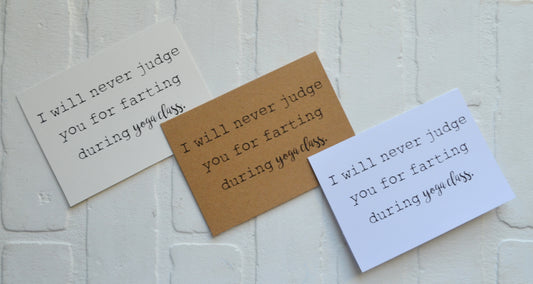 I will never judge
you for farting
during yoga class.
I will never judge
you for farting
during yoga class.
I will never judge
you for farting
during yoga class.